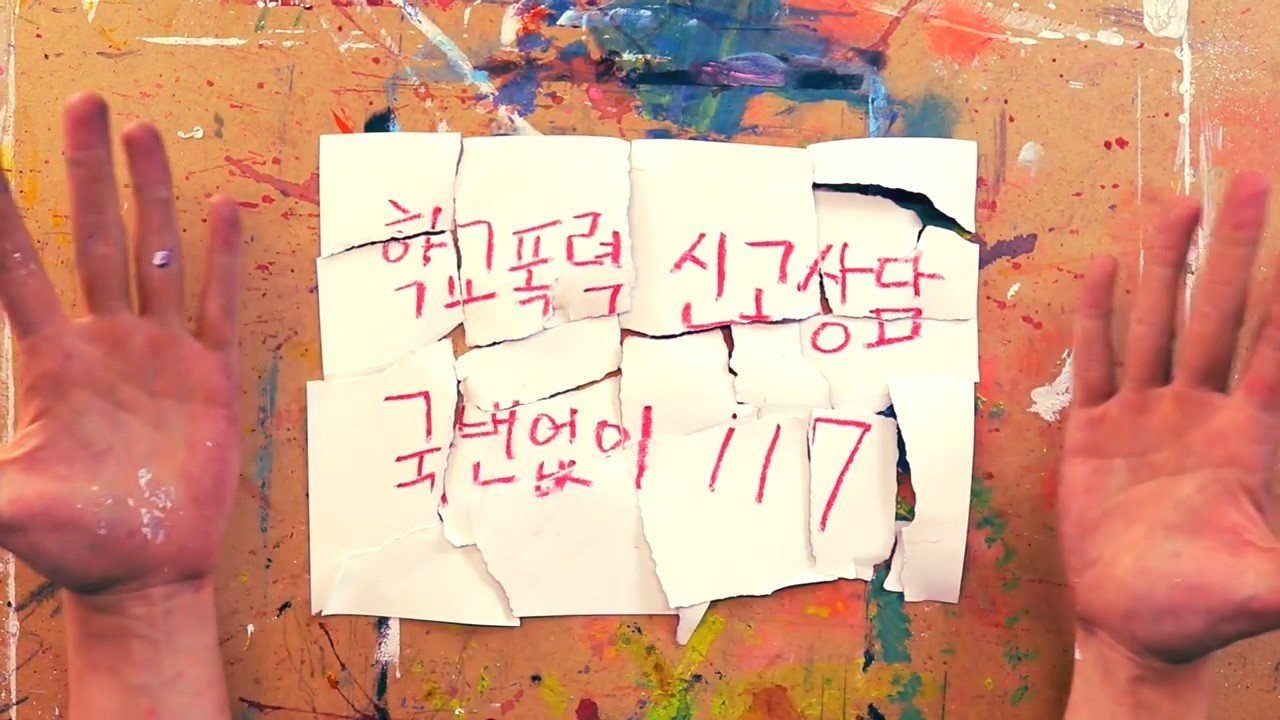 학교폭력 신고상담
국번없이 117